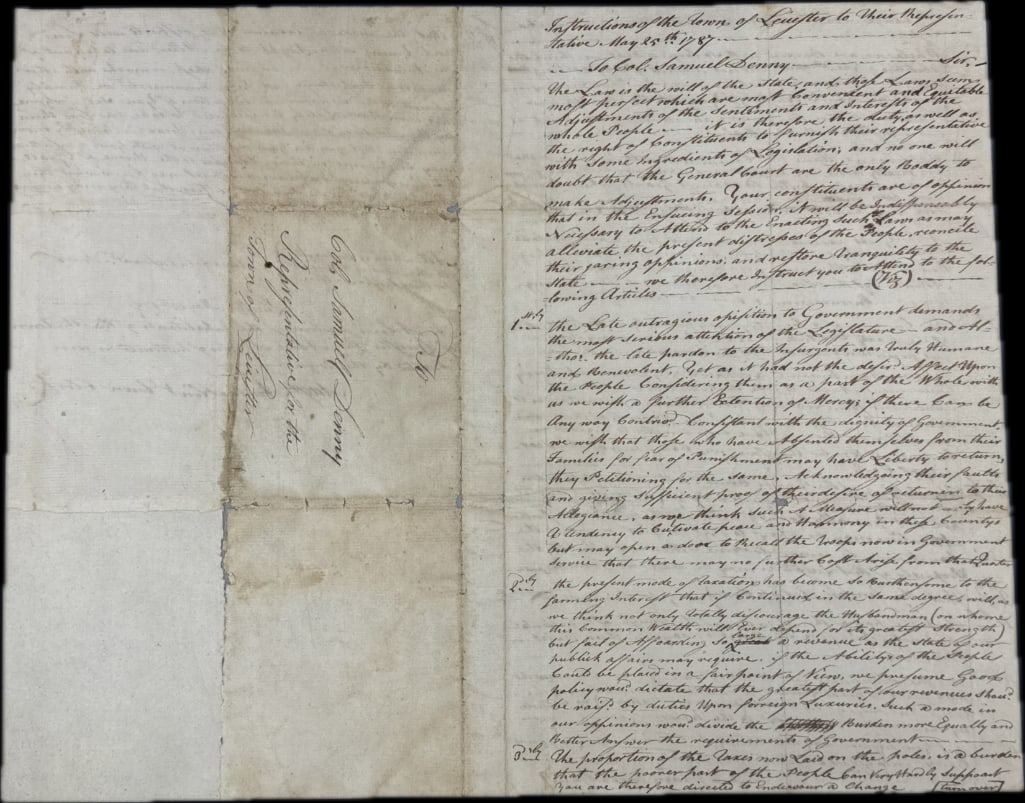 To
Col. Samuell Denny
Representative for the
Town of Leicester
Instructions of the Town of Leicester to Their Represen-
tative May 25th 1787
To Col. Samuel Denny Sir,
The Law is the will of the State, and those Laws seem
most perfect which are most Convenient and Equitable
Adjustments of the Sentiments and Interests of the
whole People it is therefore the duty, as well as
the right of Constituents to furnish their representative
with Some Ingredients of Legislation, and no one will
doubt that the General Court are the only Boddy to
make Adjustments. Your constituents are of oppinion
that in the Ensueing Session, it will be Indispensably
Necessary to Attend to the Enacting Such Laws as may
alleviate the present distresses of the People, reconcile
their jaring oppinions, and restore Tranquility to the
State we therefore Instruct you to Attend to the fol-
lowing Articles (Viz)
1stly the Late outragious opisition to Government demands
the most serious attention of the Legislature and Al-
tho' the late pardon to the Insurgents was truly Humane
and Benevolent, Yet as it had not the desir'd Affect Upon
the People Considering them as a part of the Whole with
us we wish a further Extention of Mercy; if there Can be
Any way Contriv'd Consistant with the dignity of Government
we wish that those who have Absented themselves from their
Families for fear of Punishment may have Liberty to return,
they Petitioning for the Same, Acknowledgeing their faults
and giving Sufficient proof of their desire of returnen to their
Allegiance, as we think such A Measure will not only have
A tendency to Cultivate peace and Harmony in these Countys
but may open a door to Recall the troops now in Government
Service that there may no further Cost Arise from that Quarter
2dly the present mode of taxation has become So Burthensome to the
farming Interest that if Continued in the Same degree, will, as
we think not only totally discourage the Husbandman (on whome
this Common Wealth will Ever depend for its greatest Strength)
but fail of Affoarding So large a revenue as the State of our
publick affairs may require. if the Abilitys of the People
Could be placed in a fair point of View, we presume Good
policy woud dictate that the greatest part of our revenues Shoud
be rais'd by duties Upon forreign Luxuries. Such a mode in
our oppinions woud divide the Burden more Equally and
Better Answer the requirements of Government
3dly The proportion of the Taxes now Laid on the poles, is a burden
that the poorer part of the People Can Very Hardly Support
You are therefore directed to Endeavour a Change (turn over)